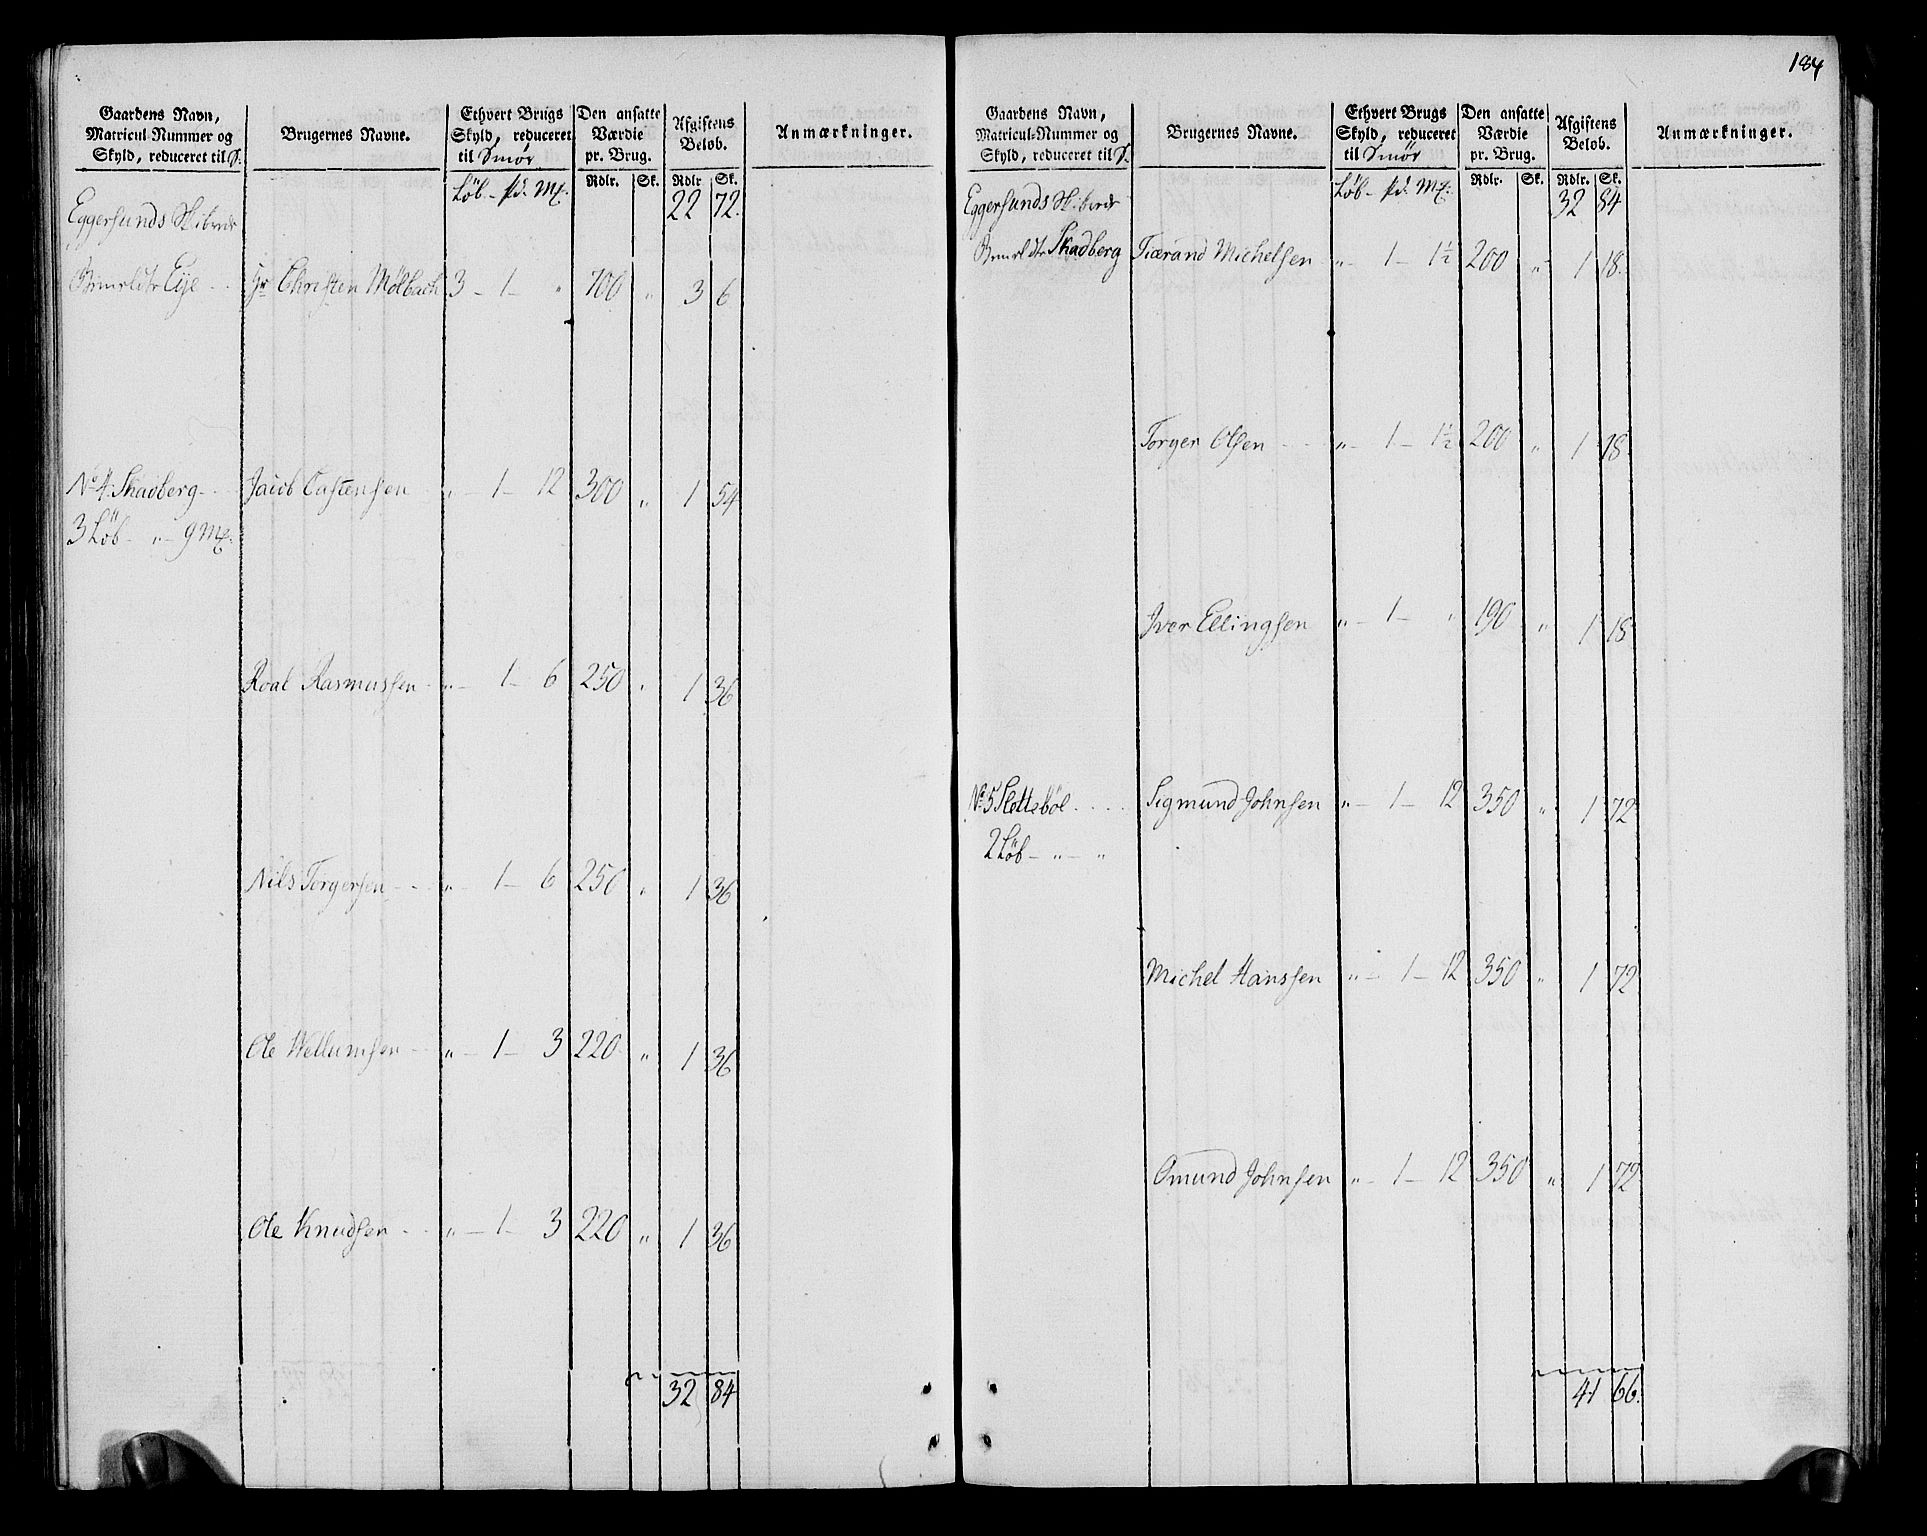 184
Gaardens Navn, Matricul-Nummer og Skyld, reduceret til S. | Brugernes Navne. | Ethvert Brugs Skyld, reduceret til Smør | Den ansatte Værdie pr. Brug. | Afgiftens Beløb. | Anmærkninger.
Løb - pd. Mk: | Rdlr. | Sk. | Rdlr | Sk.
Eggersunds Skibrede 22 72.
Eije - - Hr Christen Mølbach 3 - 1 - " 700 " 3 6
No 4. Skadberg - - Jacob Castensen " - 1 - 12 300 " 1 54
3 Løb - " - 9 Mk:
Roal Rasmussen - " - 1 - 6 250 " 1 36
Nils Torgersen - - " - 1 - 6 250 " 1 36
Ole Wellumsen - " - 1 - 3 220 " 1 36
Ole Knudsen - - " - 1 - 3 220 " 1 36
32 84
Gaardens Navn, Matricul-Nummer og Skyld, reduceret til S. | Brugernes Navne. | Ethvert Brugs Skyld, reduceret til Smør | Den ansatte Værdie pr. Brug. | Afgiftens Beløb. | Anmærkninger.
Løb - pd. Mk: | Rdlr. | Sk. | Rdlr. | Sk.
Eggersunds Skibrede 32 84
Skadberg Tiærand Michelsen " - 1 - 1½ 200 " 1 18.
Torger Olsen - - " - 1 - 1½ 200 " 1 18
Iver Ellingsen " - 1 - " 190 " 1 18
No 5 Slettebøl - - Sigmund Johnsen " - 1 - 12 350 " 1 72
2 Løb - " - "
Michel Hanssen " - 1 - 12 350 " 1 72
Omund Johnsen " - 1 - 12 350 " 1 72
41 66.